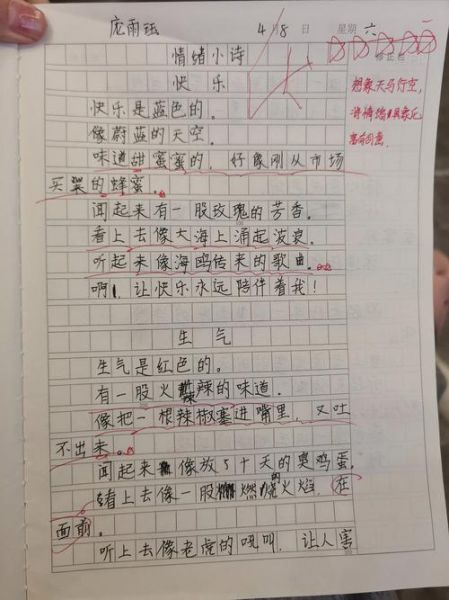 庞雨珏 4月8日 星期六
情绪小诗
快乐
修正栏
快乐是蓝色的。
像蔚蓝的天空。
味道甜蜜蜜的，好像刚从市场
买来的蜂蜜。
闻起来有一股玫瑰的芳香。
看上去像大海上涌起波浪。
听起来像海鸥传来的歌曲。
啊！让快乐永远陪伴着我！
想象天马行空，
将情绪具象化
富有创意。
生气
生气是红色的。
有一股火辣辣的味道。
像把一根辣椒塞进嘴里，又吐
不出来。
闻起来像放了十天的臭鸡蛋。
看上去像一股燃烧的火焰，在
面前。
听上去像老虎的吼叫，让人害